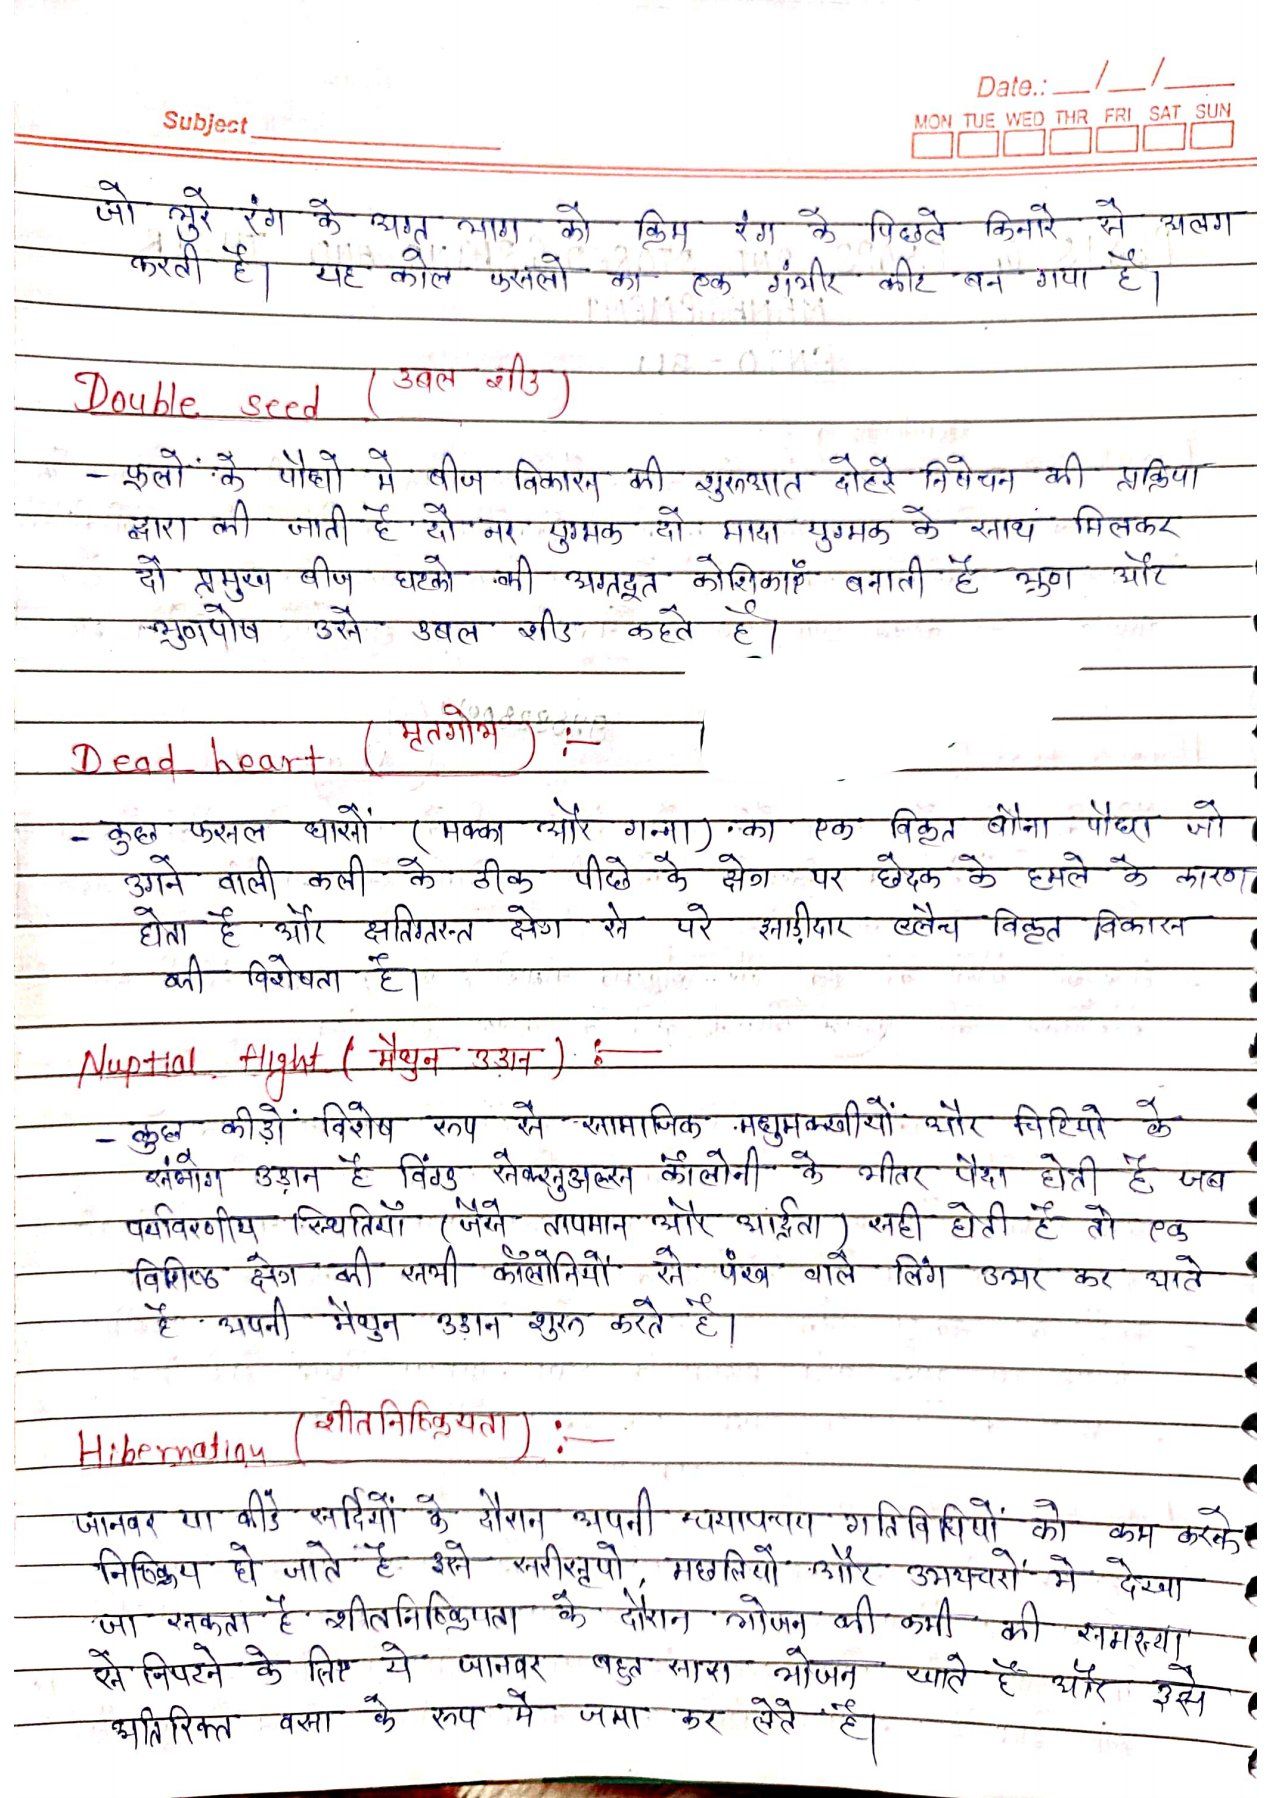 Date.: __/__/____
Subject
MON TUE WED THR FRI SAT SUN
जो भुरे रंग के अग्र भाग को क्रिम रंग के पिछले किनारे से अलग
करती है। यह कोल फसलो का एक गंभीर कीट बन गया है।
Double seed (डबल शीड)
- फुलों के पौधो मे बीज विकास की शुरुआत दोहरे निषेचन की प्रक्रिया
द्वारा की जाती है दो नर युग्मक दो मादा युग्मक के साथ मिलकर
दो प्रमुख बीज घटको की अग्रदूत कोशिकाएँ बनाती है भ्रुण और
भ्रुणपोष उसे डबल शीड कहते है।
Dead heart (मृतगोभ) :-
- कुछ फसल घासों (मक्का और गन्ना) का एक विकृत बौना पौधा जो
उगने वाली कली के ठीक पीछे के क्षेत्र पर छेदक के हमले के कारण
होता है और क्षतिग्रस्त क्षेत्र से परे झाड़ीदार विकृत विकास
की विशेषता है।
Nuptial flight (मैथुन उडान) :-
- कुछ कीड़ों विशेष रुप से सामाजिक मधुमक्खीयों और चिटियो के
संभोग उड़ान है विंगड सेक्सुअल्स कॉलोनी के भीतर पैदा होती है जब
पर्यावरणीय स्थितियाँ (जैसे तापमान और आर्द्रता) सही होती है तो एक
विशिष्ठ क्षेत्र की सभी कॉलोनियों से पंख वाले लिंग उभर कर आते
है अपनी मैथुन उड़ान शुरु करते है।
Hibernation (शीतनिष्क्रियता) :-
जानवर या कीडे सर्दियों के दौरान अपनी चयापचय गतिविधियों को कम करके
निष्क्रिय हो जाते है इसे सरीसृपो, मछलियों और उभयचरों मे देखा
जा सकता है शीतनिष्क्रियता के दौरान भोजन की कमी की समस्या
से निपटने के लिए ये जानवर बहुत सारा भोजन खाते है और इसे
अतिरिक्त वसा के रुप मे जमा कर लेते है।